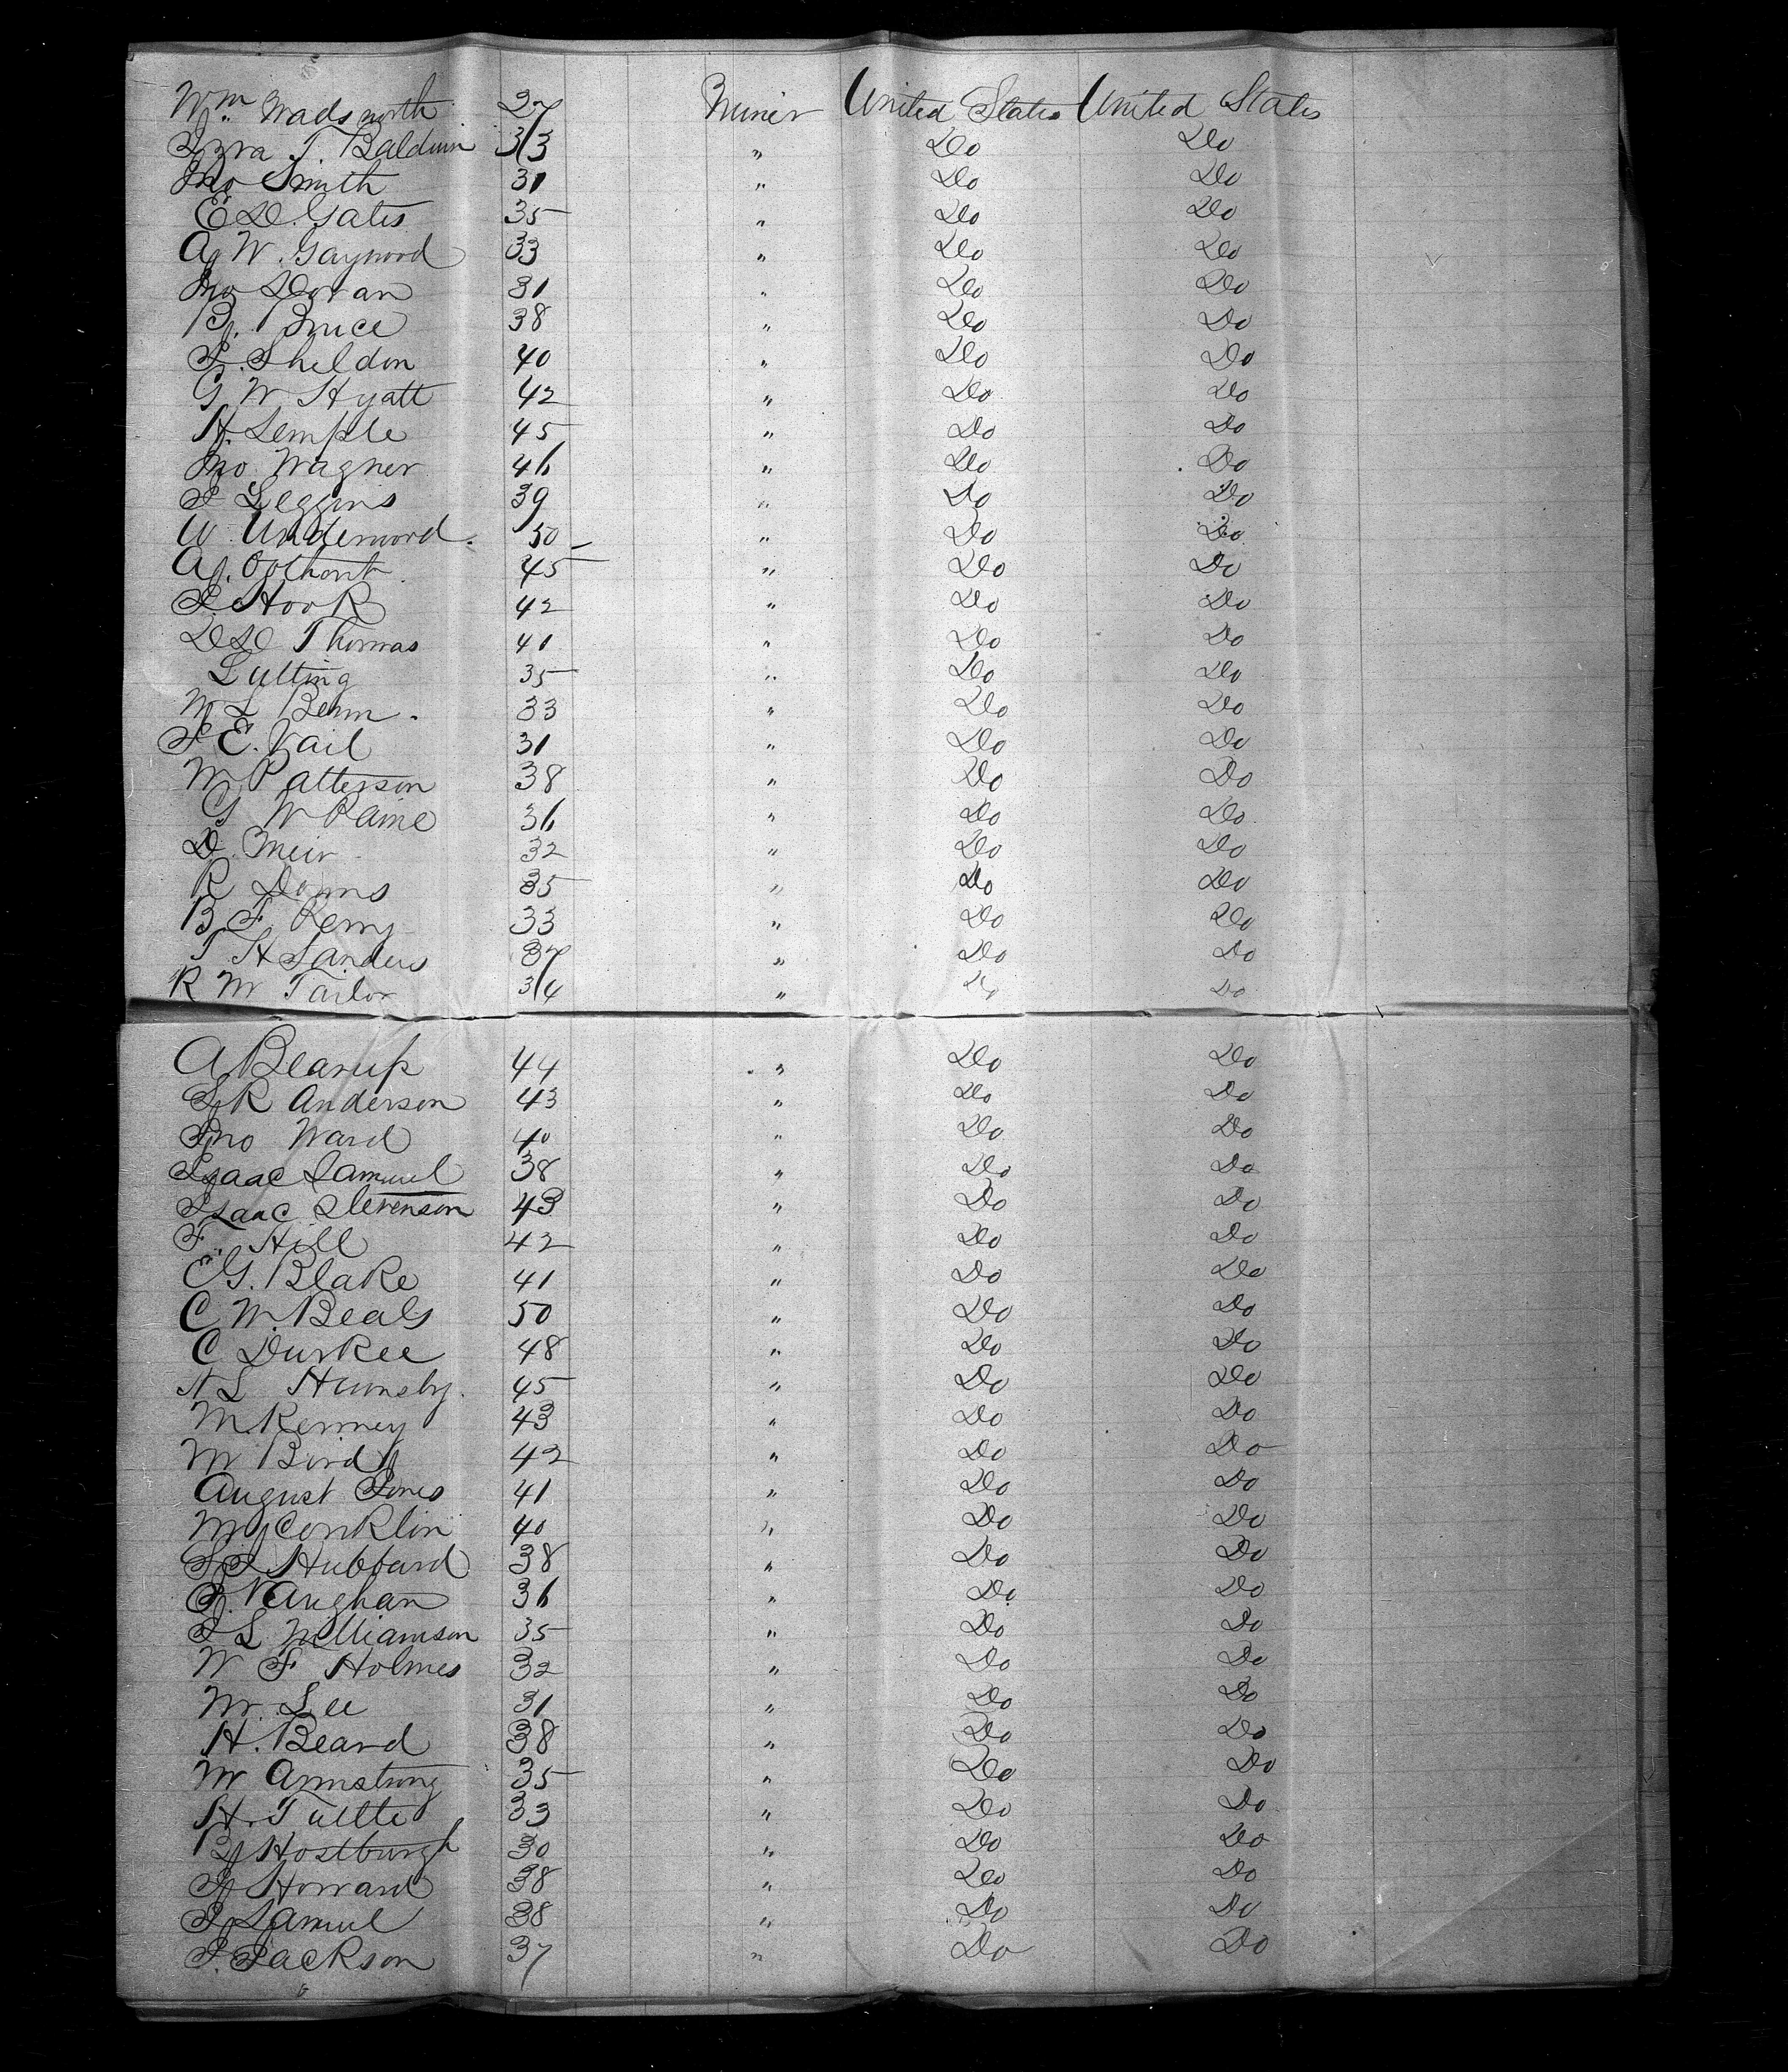 Wm. Wadsworth 27 Miner United States United States
Ezra T. Baldwin 33 " Do Do
Jno Smith 31 " Do Do
E D. Gates 35 " Do Do
A W. Gaywood 33 " Do Do
Jno Doran 31 " Do Do
B. Bruce 38 " Do Do
S. Sheldon 40 " Do Do
G W Hyatt 42 " Do Do
H. Semple 45 " Do Do
Jno. Wagner 46 " Do Do
I Leggins 39 " Do Do
W. Underwood. 50 " Do Do
A. 45 " Do Do
S. Hook 42 " Do Do
D D Thomas 41 " Do Do
Lutting 35 " Do Do
W L Behm. 33 " Do Do
S E. Vail 31 " Do Do
W Patterson 38 " Do Do
G W Paine 36 " Do Do
D. Meir 32 " Do Do
R Downs 35 " Do Do
B F. Remy 33 " Do Do
T H Sanders 37 " Do Do
R M Tailor 34 " Do Do
A Bearup 44 " Do Do
S R Anderson 43 " Do Do
Jno Ward 40 " Do Do
Isaac Samuel 38 " Do Do
Isaac Stevenson 43 " Do Do
F. Hill 42 " Do Do
E G. Blake 41 " Do Do
C W. Beals 50 " Do Do
C Durkee 48 " Do Do
N L Hunsby. 45 " Do Do
M Kenney 43 " Do Do
M Bird 42 " Do Do
August Jones 41 " Do Do
M Conklin 40 " Do Do
S I Hubbard 38 " Do Do
J. Vaughan 36 " Do Do
I L Williamson 35 " Do Do
W F Holmes 32 " Do Do
W. Lee 31 " Do Do
H. Beard 38 " Do Do
W Armstrong 35 " Do Do
H. Tuttle 33 " Do Do
B Hostburgh 30 " Do Do
J Howard 38 " Do Do
J Samuel 38 " Do Do
J. Jackson 37 " Do Do